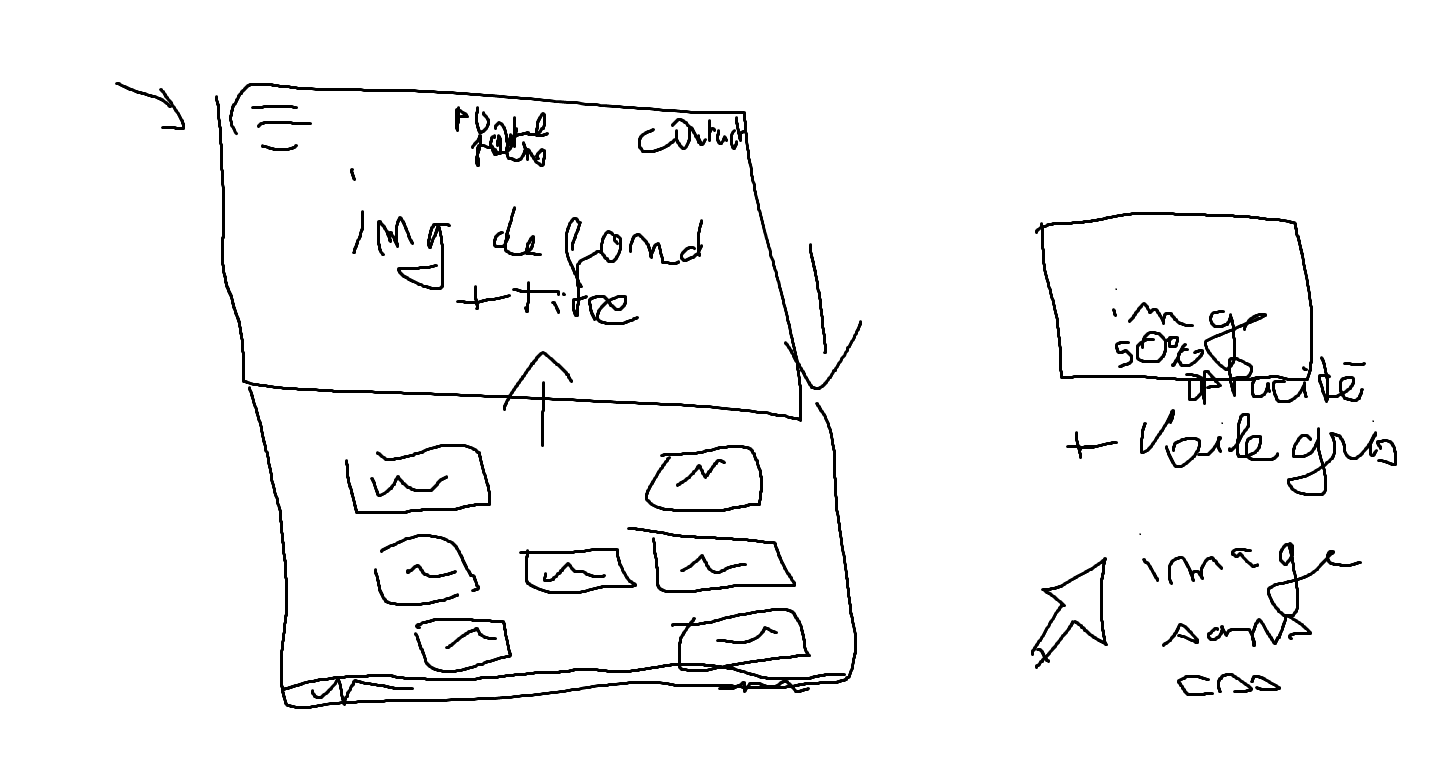 contact
img de fond
+ titre
img
50%
opacité
+ Voile gris
image
sans
css